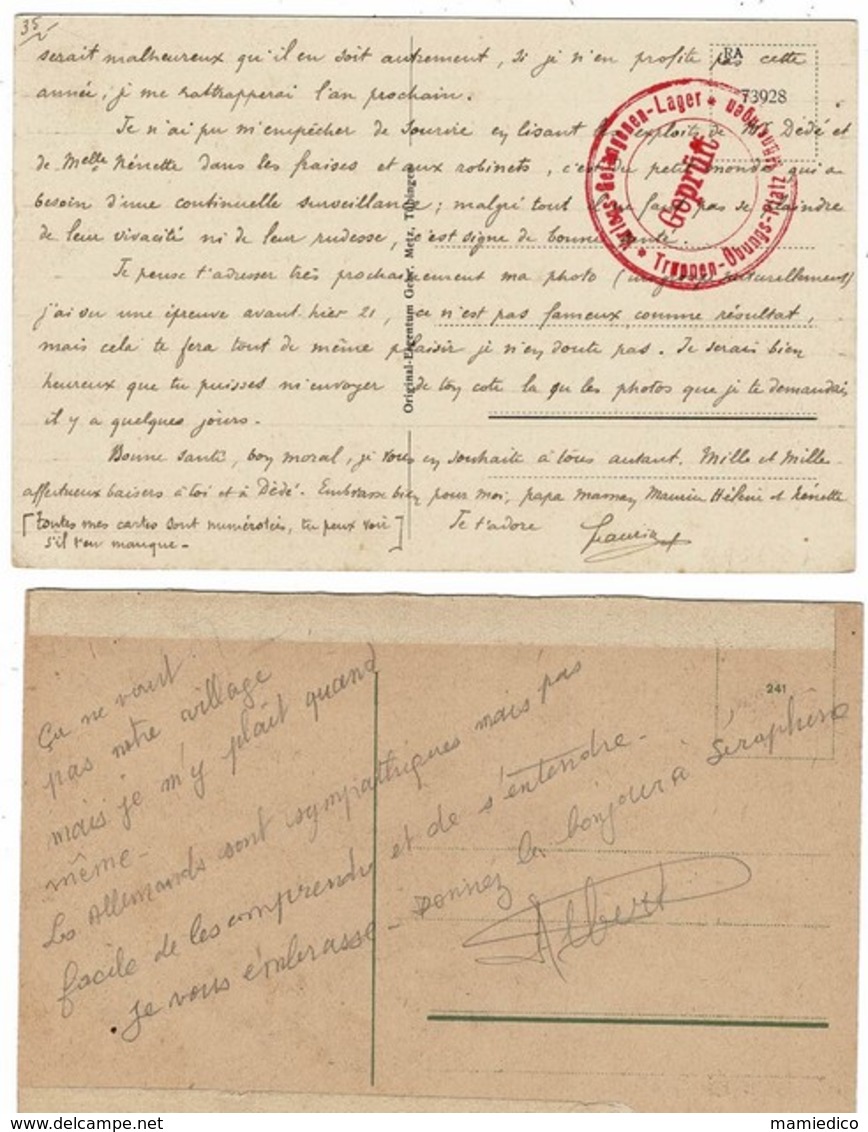 35
serait malheureux qu'il en soit autrement, si je n'en profite pas cette
année, je me rattrapperai l'an prochain.
Je n'ai pu m'empêcher de sourire en lisant les exploits de Mr Dédé et
de Melle Nénette dans les fraises et aux robinets, c'est du petit monde qui a
besoin d'une continuelle surveillance; malgré tout il ne faut pas se plaindre
de leur vivacité ni de leur rudesse, c'est signe de bonne santé.
Je pense t'adresser très prochainement ma photo ( naturellement)
j'ai vu une épreuve avant-hier 21, ce n'est pas fameux comme résultat,
mais cela te fera tout de même plaisir je n'en doute pas. Je serais bien
heureux que tu puisses m'envoyer de ton coté la ou les photos que je te demandais
il y a quelques jours.
Bonne santé, bon moral, je vous en souhaite à tous autant. Mille et Mille
affectueux baisers à toi et à Dédé. Embrasse bien pour moi, papa maman Maurice Hélène et Nénette
[toutes mes cartes sont numérotées, tu peux voir
s'il t'en manque -]
Je t'adore
RA
73928
Kriegs-Gefangenen-Lager * Truppen-Übungs-Platz Münsingen *
Geprüft
Original-Eigentum Gebr. Metz, Tübingen
241
Ça ne vaut
pas notre village
mais je m'y plaît quand
même -
Les Allemands sont sympathiques mais pas
facile de les comprendre et de s'entendre -
Je vous embrasse - Donnez le bonjour à Séraphine
Albert
mamiedico